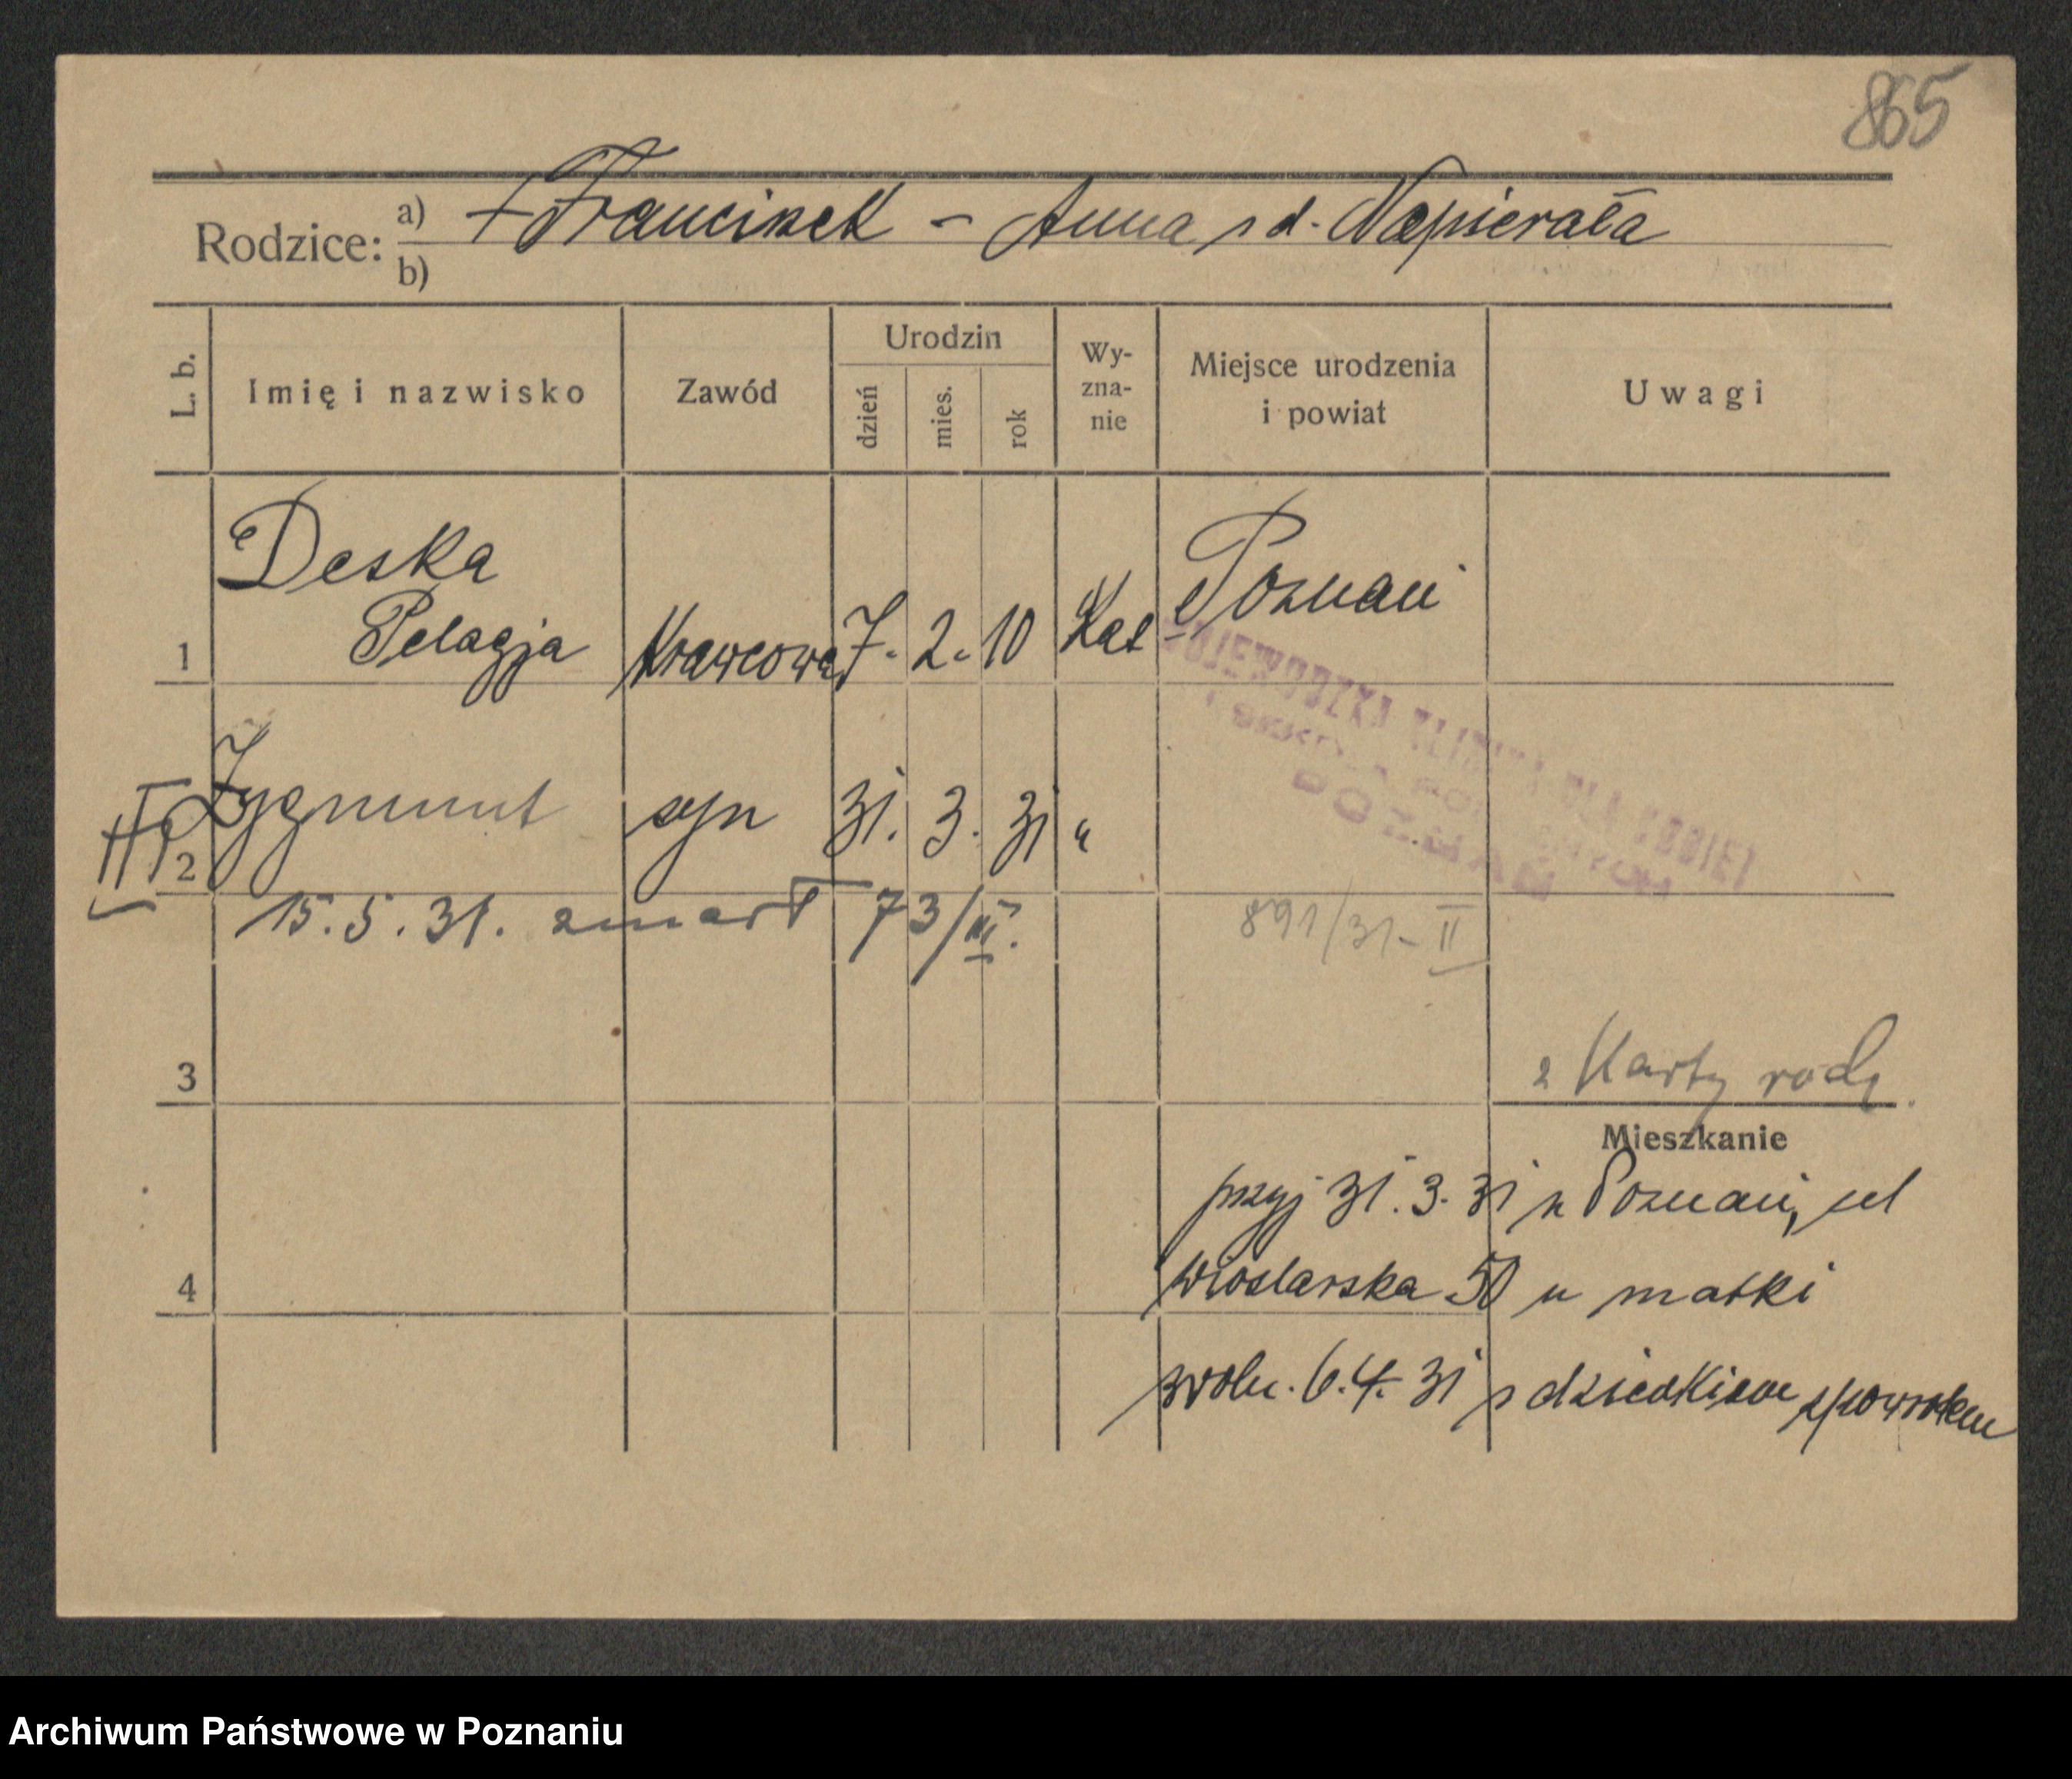 865
Rodzice: a) + Franciszek – Anna z d. Napierała
b)
L. b.
Imię i nazwisko
Zawód
Urodzin
dzień
mies.
rok
Wy-
zna-
nie
Miejsce urodzenia
i powiat
Uwagi
Deska
Poznań
1 Pelagja Krawcowa 7. 2. 10 Kat
WOJEWÓDZKA KLINIKA DLA KOBIET
POZNAŃ
2 Zygmunt syn 31. 3. 31 "
15. 5. 31. zmarł 73/III.
891/31 – II
3
z Karty rodz.
Mieszkanie
przyj 31. 3. 31 z Poznań, ul
4 Wioślarska 50 u matki
zwoln. 6. 4. 31 z dzieckiem zpowrotem
Archiwum Państwowe w Poznaniu